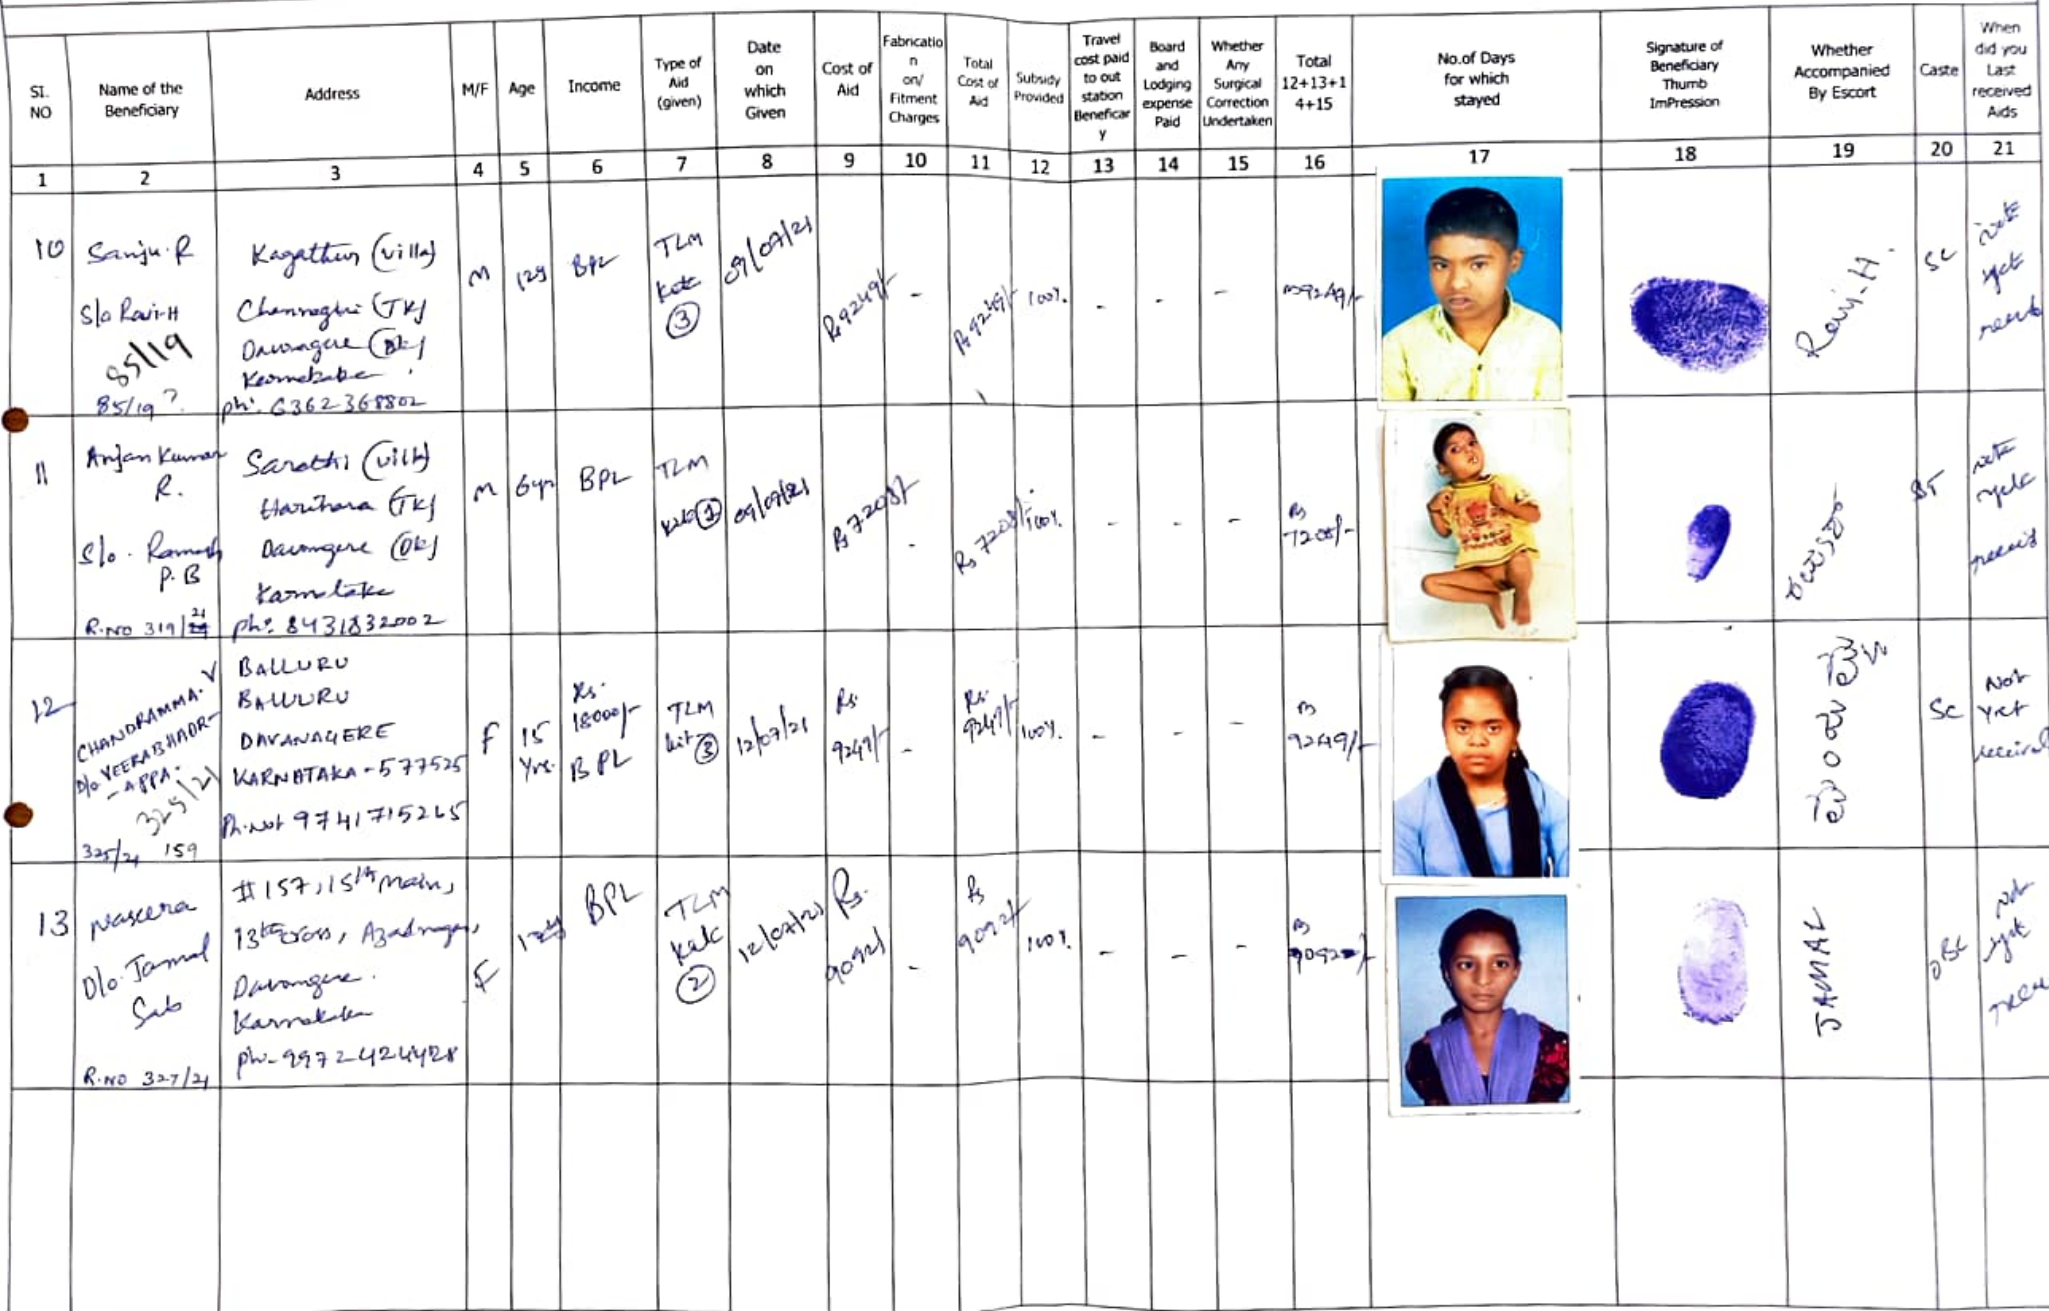 SI. NO
Name of the Beneficiary
Address
M/F
Age
Income
Type of Aid (given)
Date on which Given
Cost of Aid
Fabricatio n on/ Fitment Charges
Total Cost of Aid
Subsidy Provided
Travel cost paid to out station Beneficar y
Board and Lodging expense Paid
Whether Any Surgical Correction Undertaken
Total 12+13+1 4+15
No.of Days for which stayed
Signature of Beneficiary Thumb ImPression
Whether Accompanied By Escort
Caste
When did you Last received Aids
1 2 3 4 5 6 7 8 9 10 11 12 13 14 15 16 17 18 19 20 21
10
Sanju.R
S/o Ravi-H
85/19
85/19 ?
Kagathur (Villa)
(TK)
Davangere
ph: 6362368802
M
BPL
TLM
3
09/07/21
Rs 9249/-
-
Rs 9249/-
100%
-
-
-
9249/-
Ravi-H.
SC
11
Anjan Kumar
R.
S/o. Ramesh
P.B
R.NO 319/21
Sarathi (Vill)
Harihara (TK)
Davangere
Karnataka
ph: 8431832002
M
6yr
BPL
TLM
1
09/07/21
Rs 7208/-
-
Rs 7208/-
100%
-
-
-
Rs
7208/-
ST
12
CHANDRAMMA. V
D/o. VEERABHADR-
- APPA.
325/21
325/21 159
BALLURU
BALLURU
DAVANAGERE
KARNATAKA - 577525
Ph.No: 9741715265
F
15
Yrs.
Rs.
18000/-
BPL
TLM
kit 3
12/07/21
Rs.
9249/-
-
Rs.
9249/-
100%
-
-
-
9249/-
SC
Not
Yet
received
13
Naseera
D/o. Jamal
Sab
R.NO 327/21
#157, 15th Main,
13th cross, Azadnagar,
Davangere.
Karnataka
ph- 9972424428
F
BPL
TLM
2
12/07/21
Rs.
9092/
-
Rs
9092/-
100%
-
-
-
JAMAL
OBC
Not
yet